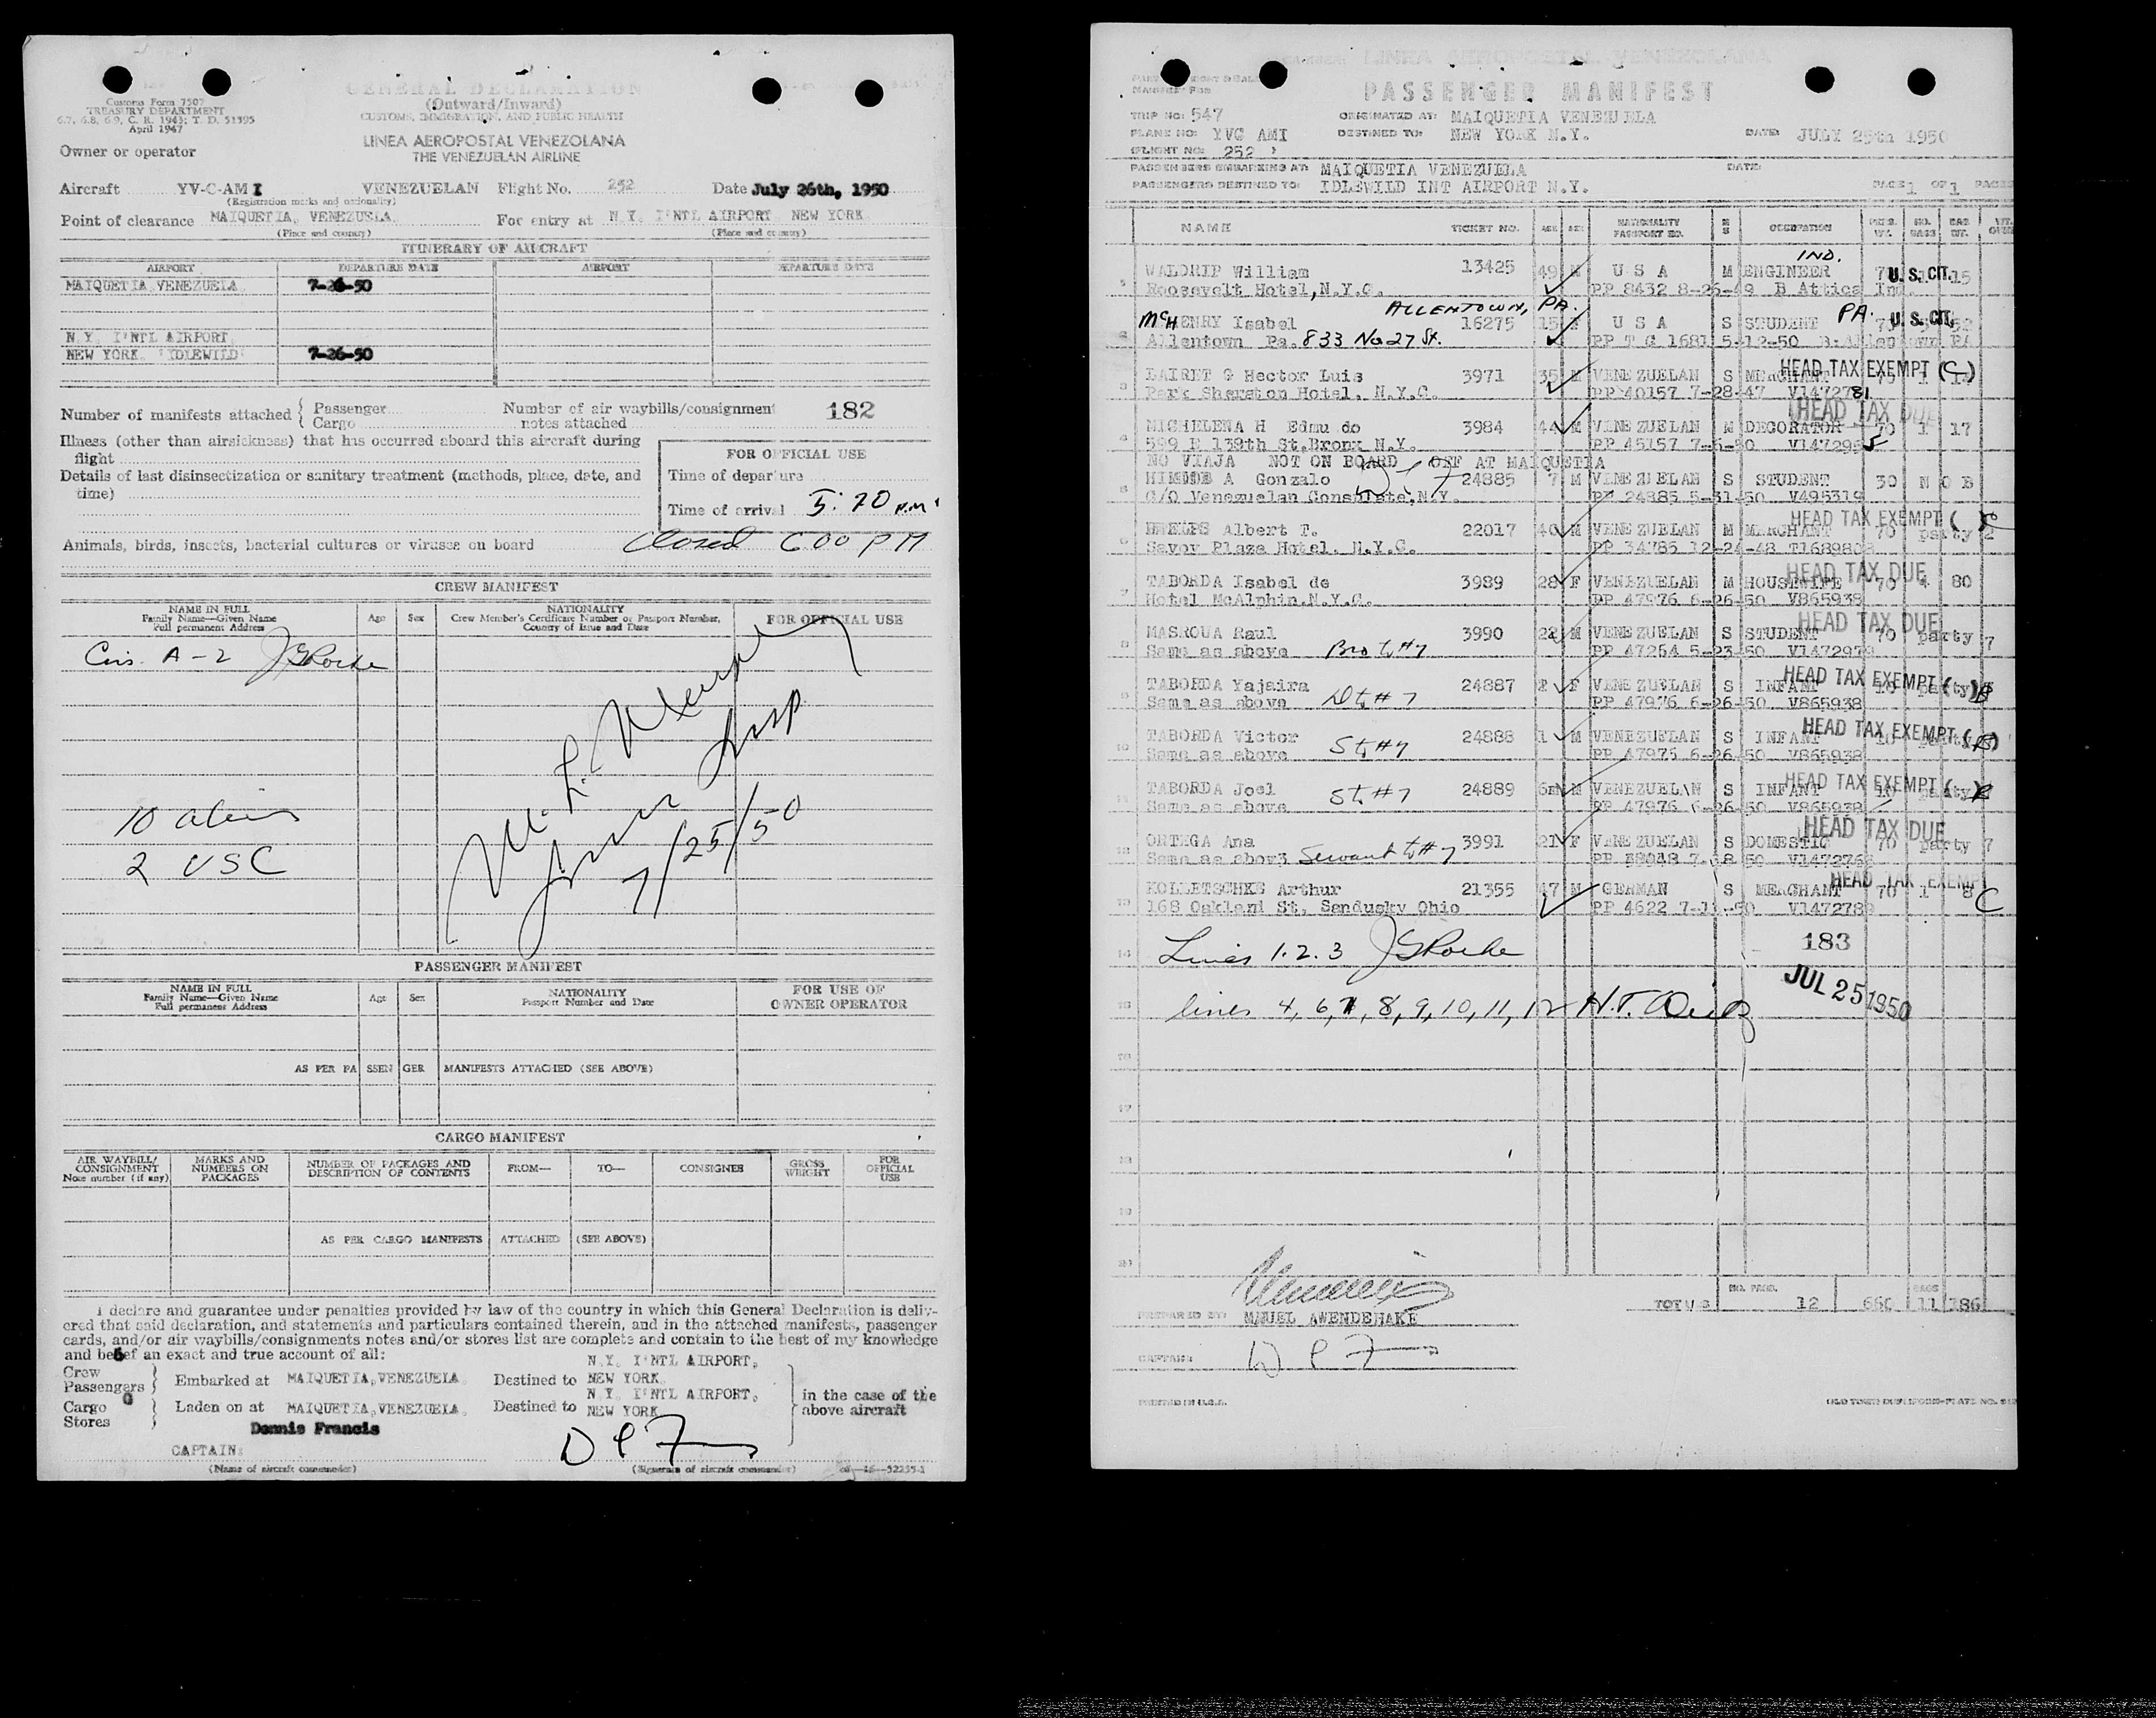 Customs Form 7507
TREASURY DEPARTMENT
6.7, 6.8, 6.9, C. R. 1943; T. D. 51595
April 1947
GENERAL DECLARATION
(Outward/Inward)
CUSTOMS, IMMIGRATION, AND PUBLIC HEALTH
Owner or operator
LINEA AEROPOSTAL VENEZOLANA
THE VENEZUELAN AIRLINE
Aircraft YV-C-AM I VENEZUELAN Flight No. 252 Date July 26th, 1950
(Registration marks and nationality)
Point of clearance MAIQUETIA, VENEZUELA. For entry at N.Y. I'NTL AIRPORT NEW YORK
(Place and country) (Place and country)
ITINERARY OF AIRCRAFT
AIRPORT DEPARTURE DATE AIRPORT DEPARTURE DATE
MAIQUETIA VENEZUELA 7-26-50
N.Y. I'NTL AIRPORT
NEW YORK "IDLEWILD" 7-26-50
Number of manifests attached Passenger Cargo Number of air waybills/consignment notes attached 182
Illness (other than airsickness) that has occurred aboard this aircraft during
flight
Details of last disinsectization or sanitary treatment (methods, place, date, and
time)
FOR OFFICIAL USE
Time of departure
Time of arrival 5:20 P.M.
Animals, birds, insects, bacterial cultures or viruses on board Closed 600 PM
CREW MANIFEST
NAME IN FULL
Family Name—Given Name
Full permanent Address
Age Sex
NATIONALITY
Crew Member's Certificate Number or Passport Number,
Country of Issue and Date
FOR OFFICIAL USE
A-2 JGRoche
Insp
7/25/50
10 aliens
2 USC
PASSENGER MANIFEST
NAME IN FULL
Family Name—Given Name
Full permanent Address
Age Sex
NATIONALITY
Passport Number and Date
FOR USE OF
OWNER OPERATOR
AS PER PA SSEN GER MANIFESTS ATTACHED (SEE ABOVE)
CARGO MANIFEST
AIR WAYBILL/
CONSIGNMENT
Note number (if any)
MARKS AND
NUMBERS ON
PACKAGES
NUMBER OF PACKAGES AND
DESCRIPTION OF CONTENTS
FROM— TO— CONSIGNEE
GROSS
WEIGHT
FOR
OFFICIAL
USE
AS PER CARGO MANIFESTS ATTACHED (SEE ABOVE)
I declare and guarantee under penalties provided by law of the country in which this General Declaration is deliv-
ered that said declaration, and statements and particulars contained therein, and in the attached manifests, passenger
cards, and/or air waybills/consignments notes and/or stores list are complete and contain to the best of my knowledge
and belief an exact and true account of all:
Crew
Passengers
Cargo
Stores
Embarked at MAIQUETIA, VENEZUELA. Destined to N.Y. I'NTL AIRPORT, NEW YORK.
Laden on at MAIQUETIA, VENEZUELA. Destined to N.Y. I'NTL AIRPORT, NEW YORK
in the case of the
above aircraft
Dennis Francis
CAPTAIN:
(Name of aircraft commander) (Signature of aircraft commander)
LINEA AEROPOSTAL VENEZOLANA
PASSENGER MANIFEST
TRIP NO: 547 ORIGINATED AT: MAIQUETIA VENEZUELA
PLANE NO: YVC AMI DESTINED TO: NEW YORK N.Y. DATE: JULY 25th 1950
(FLIGHT NO: 252 )
PASSENGERS EMBARKING AT: MAIQUETIA VENEZUELA DATE:
PASSENGERS DESTINED TO: IDLEWILD INT AIRPORT N.Y. PAGE 1 OF 1 PAGES
NAME TICKET NO. AGE SEX NATIONALITY PASSPORT NO. M S OCCUPATION
WALDRIP William 13425 49 M U S A M ENGINEER IND. U.S. CIT. 15
Roosevelt Hotel, N.Y.C. PP 8432 8-26-49 B Attica Ind.
ALLENTOWN, PA.
McHENRY Isabel 16275 15 F U S A S STUDENT PA. U.S. CIT.
Allentown Pa. 833 No 27 St. PP T G 1681 5-12-50
LAIRET G Hector Luis 3971 35 M VENEZUELAN S MERCHANT HEAD TAX EXEMPT (C)
Park Sheraton Hotel. N.Y.C. PP 40157 7-28-47 V1472781
HEAD TAX DUE
MICHELENA H Edmundo 3984 44 M VENEZUELAN M DECORATOR 70 1 17
599 E 139th St, Bronx N.Y. PP 45157 7-6-50 V1472955
NO VIAJA NOT ON BOARD OFF AT MAIQUETIA
Gonzalo 24885 7 M VENEZUELAN S STUDENT 30 N O B
C/O Venezuelan Consulate, N.Y. PP 24885 5-31-50 V495319
HEAD TAX EXEMPT
PHELPS Albert T. 22017 40 M VENEZUELAN M MERCHANT 70 party 2
Savoy Plaza Hotel. N.Y.C. PP 34785 12-24-48
HEAD TAX DUE
TABORDA Isabel de 3989 28 F VENEZUELAN M HOUSEWIFE 70 4 80
Hotel McAlphin. N.Y.C. PP 47976 6-26-50 V865938
HEAD TAX DUE
MASROUA Raul 3990 22 M VENEZUELAN S STUDENT 70 party 7
Same as above Bro to #7 PP 47254 5-23-50
HEAD TAX EXEMPT
TABORDA Yajaira 24887 F VENEZUELAN S INFANT
Same as above Dt #7 PP 47976 6-26-50 V865938
HEAD TAX EXEMPT
TABORDA Victor 24888 1 M VENEZUELAN S INFANT
Same as above St #7 PP 47976 6-26-50 V865938
HEAD TAX EXEMPT
TABORDA Joel 24889 6m M VENEZUELAN S INFANT
Same as above St #7 PP 47976 6-26-50 V865938
HEAD TAX DUE
ORTEGA Ana 3991 21 F VENEZUELAN S DOMESTIC 70 party 7
Same as above Servant to #7
HEAD TAX EXEMPT C
Arthur 21355 47 M GERMAN S MERCHANT 70 1 8
168 Oakland St, Sandusky Ohio PP 4622 V1472789
Lines 1.2.3 JGRoche 183
JUL 25 1950
lines 4, 6, 7, 8, 9, 10, 11, 12
TOTALS 12 660 11 186
PREPARED BY: MANUEL AWENDEHAKE
CAPTAIN:
PRINTED IN U.S.A.